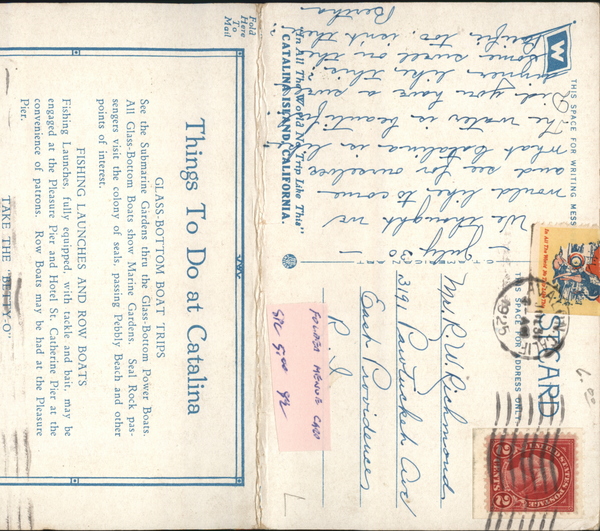 Fold
Here
To
Mail
Things To Do at Catalina
GLASS-BOTTOM BOAT TRIPS
See the Submarine Gardens thru the Glass-Bottom Power Boats.
All Glass-Bottom Boats show Marine Gardens. Seal Rock pas-
sengers visit the colony of seals, passing Pebbly Beach and other
points of interest.
FISHING LAUNCHES AND ROW BOATS
Fishing Launches, fully equipped, with tackle and bait, may be
engaged at the Pleasure Pier and Hotel St. Catherine Pier at the
convenience of patrons. Row Boats may be had at the Pleasure
Pier.
TAKE THE "BETTY-O"
"In All The World No Trip Like This"
CATALINA ISLAND, CALIFORNIA.
W
THIS SPACE FOR WRITING MESS
CARD
THIS SPACE FOR ADDRESS ONLY
July 30
We thought we
would like to come
and see for ourselves
what Catalina is like
The water is beautiful
Did you have a
like this
some swell on the
Pacific too, isn't there
Bertha
Mrs. R. W. Richmond
3191 Pawtucket Ave
East Providence
R. I.
FOLDER MENU & CARD
6.00
In All The World No Trip Like This
UNITED STATES POSTAGE
2 CENTS 2